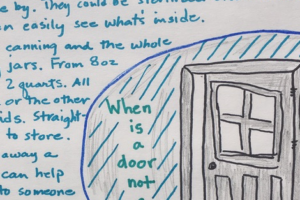 e by. They could be
n easily see what's inside.
canning and the whole
jars. From 8oz
2 quarts. All
or the other
ids. Straight-
to store.
away a
can help
to someone
When
is
a
door
not